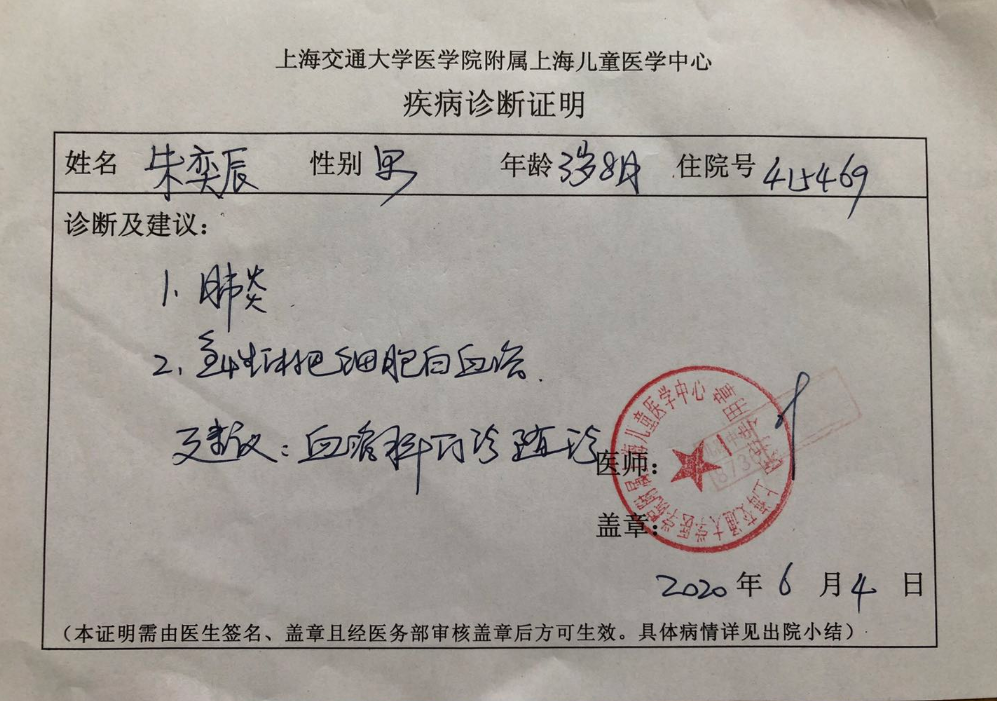 上海交通大学医学院附属上海儿童医学中心
疾病诊断证明
姓名 朱奕辰 性别 男 年龄 3岁8月 住院号 415469
诊断及建议：
1、肺炎
2、急性淋巴细胞白血病.
建议：血液科门诊随访
医师：
盖章：
上海交通大学医学院附属上海儿童医学中心
2020 年 6 月 4 日
（本证明需由医生签名、盖章且经医务部审核盖章后方可生效。具体病情详见出院小结）